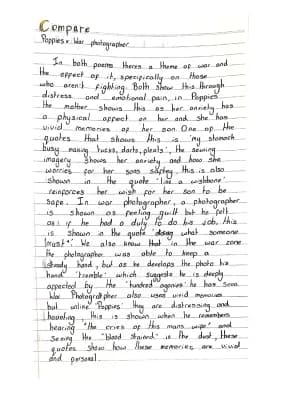 Compare
Poppies v War photographer
In both poems theres a theme of war and
the effect of it, specifically on those
who aren't fighting. Both show this through
distress and emotional pain, in Poppies
the mother shows this as her anxiety has
a physical affect on her and she has
vivid memories of her son. One of the
quotes that shows this is 'my stomach
busy making tucks, darts, pleats', the sewing
imagery shows her anxiety and how she
worries for her sons saftey, this is also
shown in the quote 'like a wishbone'
reinforces her wish for her son to be
safe. In war photographer, a photographer
is shown as feeling guilt but he felt
as if he had a duty to do his job, this
is shown in the quote 'doing what someone
must'. We also know that in the war zone
the photographer was able to keep a
steady hand, but as he develops the photo his
hand 'tremble' which suggests he is deeply
affected by the 'hundred agonies' he has seen.
War Photographer also uses vivid memories
but unlike 'Poppies' they are distressing and
haunting, this is shown when he remembers
hearing "the cries of this mans wife" and
seeing the 'blood stained' in the dust, these
quotes show how these memories are vivid
and personal.